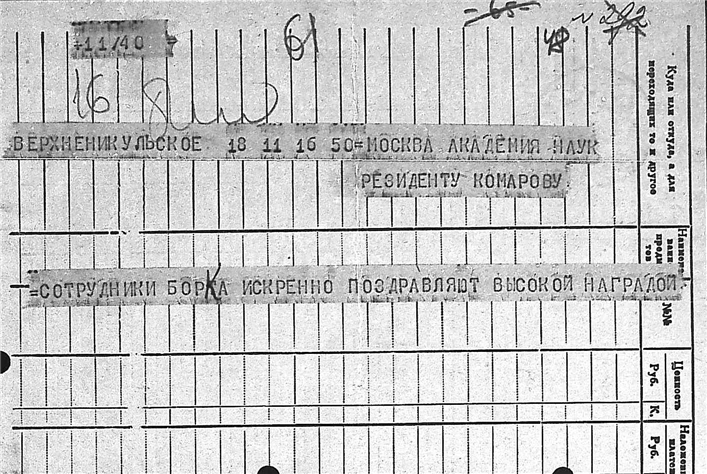 -65-
11/40
61
48
16
ВЕРХНЕНИКУЛЬСКОЕ 18 11 16 50=МОСКВА АКАДЕМИЯ НАУК
РЕЗИДЕНТУ КОМАРОВУ
=СОТРУДНИКИ БОРКА ИСКРЕННО ПОЗДРАВЛЯЮТ ВЫСОКОЙ НАГРАДОЙ
Куда или откуда, а для
переходящих то и другое
№№
Ценность
Руб. К.
Руб.